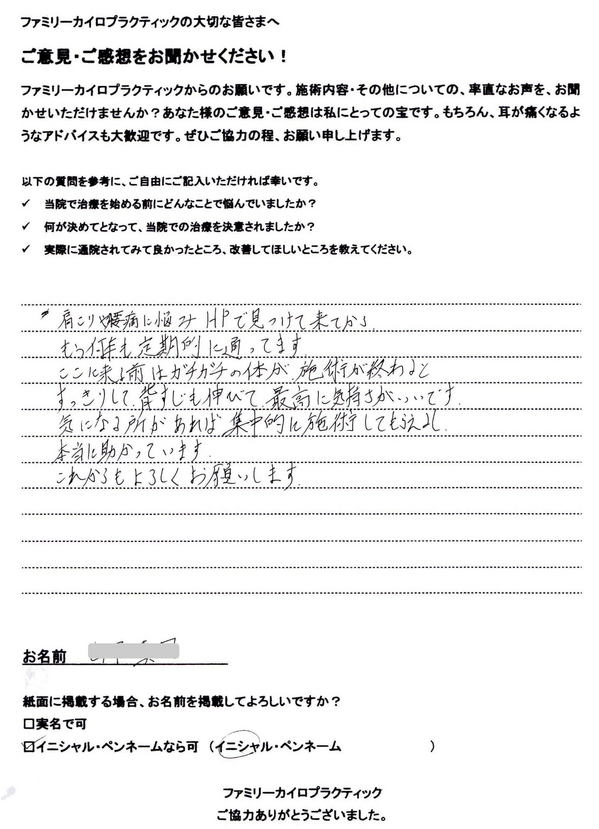 ファミリーカイロプラクティックの大切な皆さまへ
ご意見・ご感想をお聞かせください！
ファミリーカイロプラクティックからのお願いです。施術内容・その他についての、率直なお声を、お聞
かせいただけませんか？あなた様のご意見・ご感想は私にとっての宝です。もちろん、耳が痛くなるよ
うなアドバイスも大歓迎です。ぜひご協力の程、お願い申し上げます。
以下の質問を参考に、ご自由にご記入いただければ幸いです。
✓ 当院で治療を始める前にどんなことで悩んでいましたか？
✓ 何が決めてとなって、当院での治療を決意されましたか？
✓ 実際に通院されてみて良かったところ、改善してほしいところを教えてください。
肩こりや腰痛に悩みHPで見つけて来てから
もう何年も定期的に通ってます。
ここに来る前はガチガチの体が施術が終わると
すっきりして、背すじも伸びて、最高に気持ちがいいです。
気になる所があれば集中的に施術してもらえるし
本当に助かっています。
これからもよろしくお願いします。
お名前
紙面に掲載する場合、お名前を掲載してよろしいですか？
□実名で可
☑イニシャル・ペンネームなら可 （イニシャル・ペンネーム ）
ファミリーカイロプラクティック
ご協力ありがとうございました。